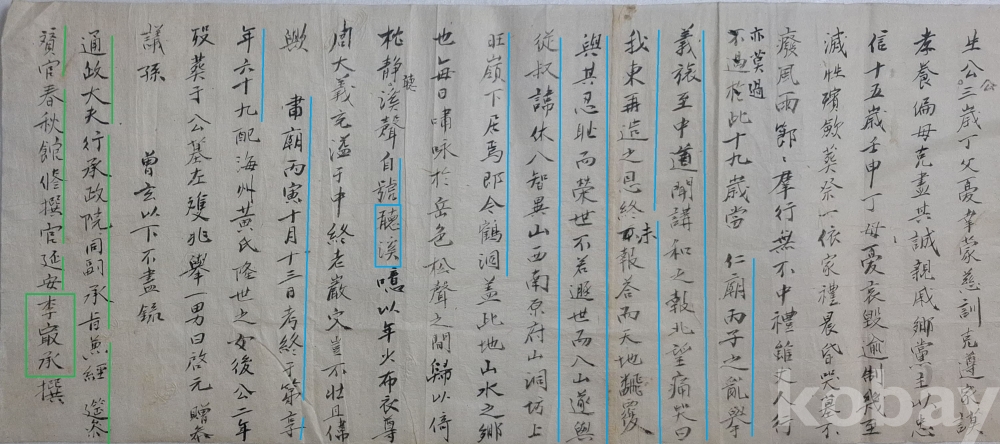 生公三歲丁父憂早蒙慈訓克遵家謨
孝養偏母克盡其誠親戚鄉黨主以忠
信十五歲壬申丁母憂哀毀逾制幾至
滅性殯斂葬祭一依家禮晨昏哭墓不
廢風雨節節羣行無不中禮雖丈人行
亦莫過
不過於此十九歲當 仁廟丙子之亂擧
義旅至中道聞講和之報北望痛哭曰
我東再造之恩終未報答而天地飜覆
與其忍耻而榮世不若遯世而入山遂與
從叔諱休入智異山西南原府山洞坊上
旺嶺下居焉卽今鶴洞盖此地山水之鄕
也每日嘯咏於岳色松聲之間歸以倚
枕靜聽溪聲自號聽溪噫以年少布衣尊
周大義充溢于中終老巖穴豈不壯且偉
歟 肅廟丙寅十月十三日考終于第享
年六十九配海州黃氏隆世之女後公二年
歿葬于公墓左雙兆擧一男曰啓元 贈參
議孫 曾玄以下不盡錄
通政大夫行承政院同副承旨兼經筵參
贊官春秋館修撰官延安李㝡承撰
kobay